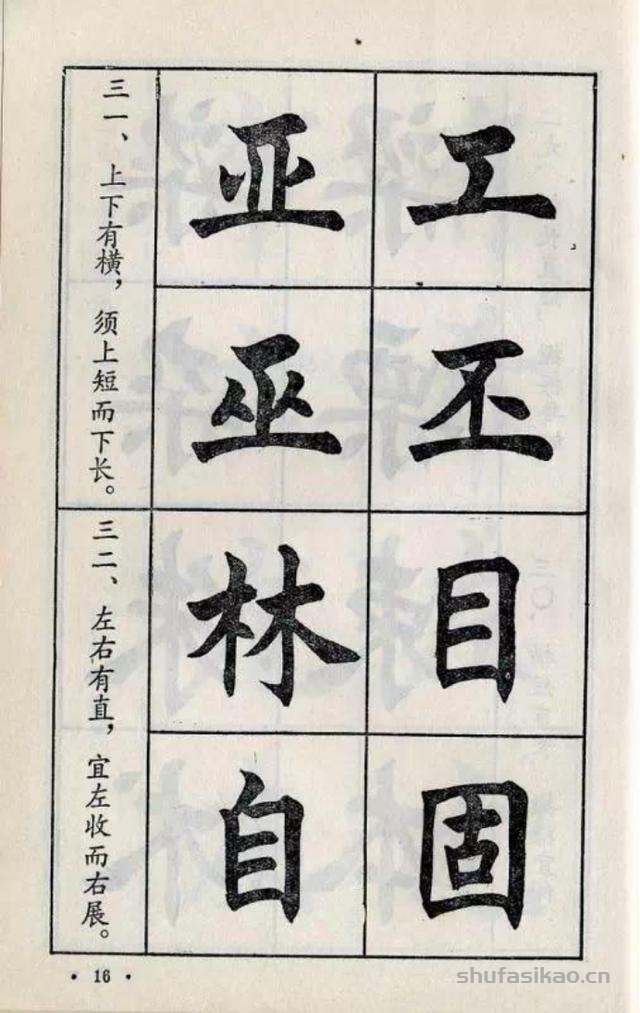 三一、上下有横，须上短而下长。
工
亚
丕
巫
三二、左右有直，宜左收而右展。
目
林
固
自
• 16 •
shufasikao.cn